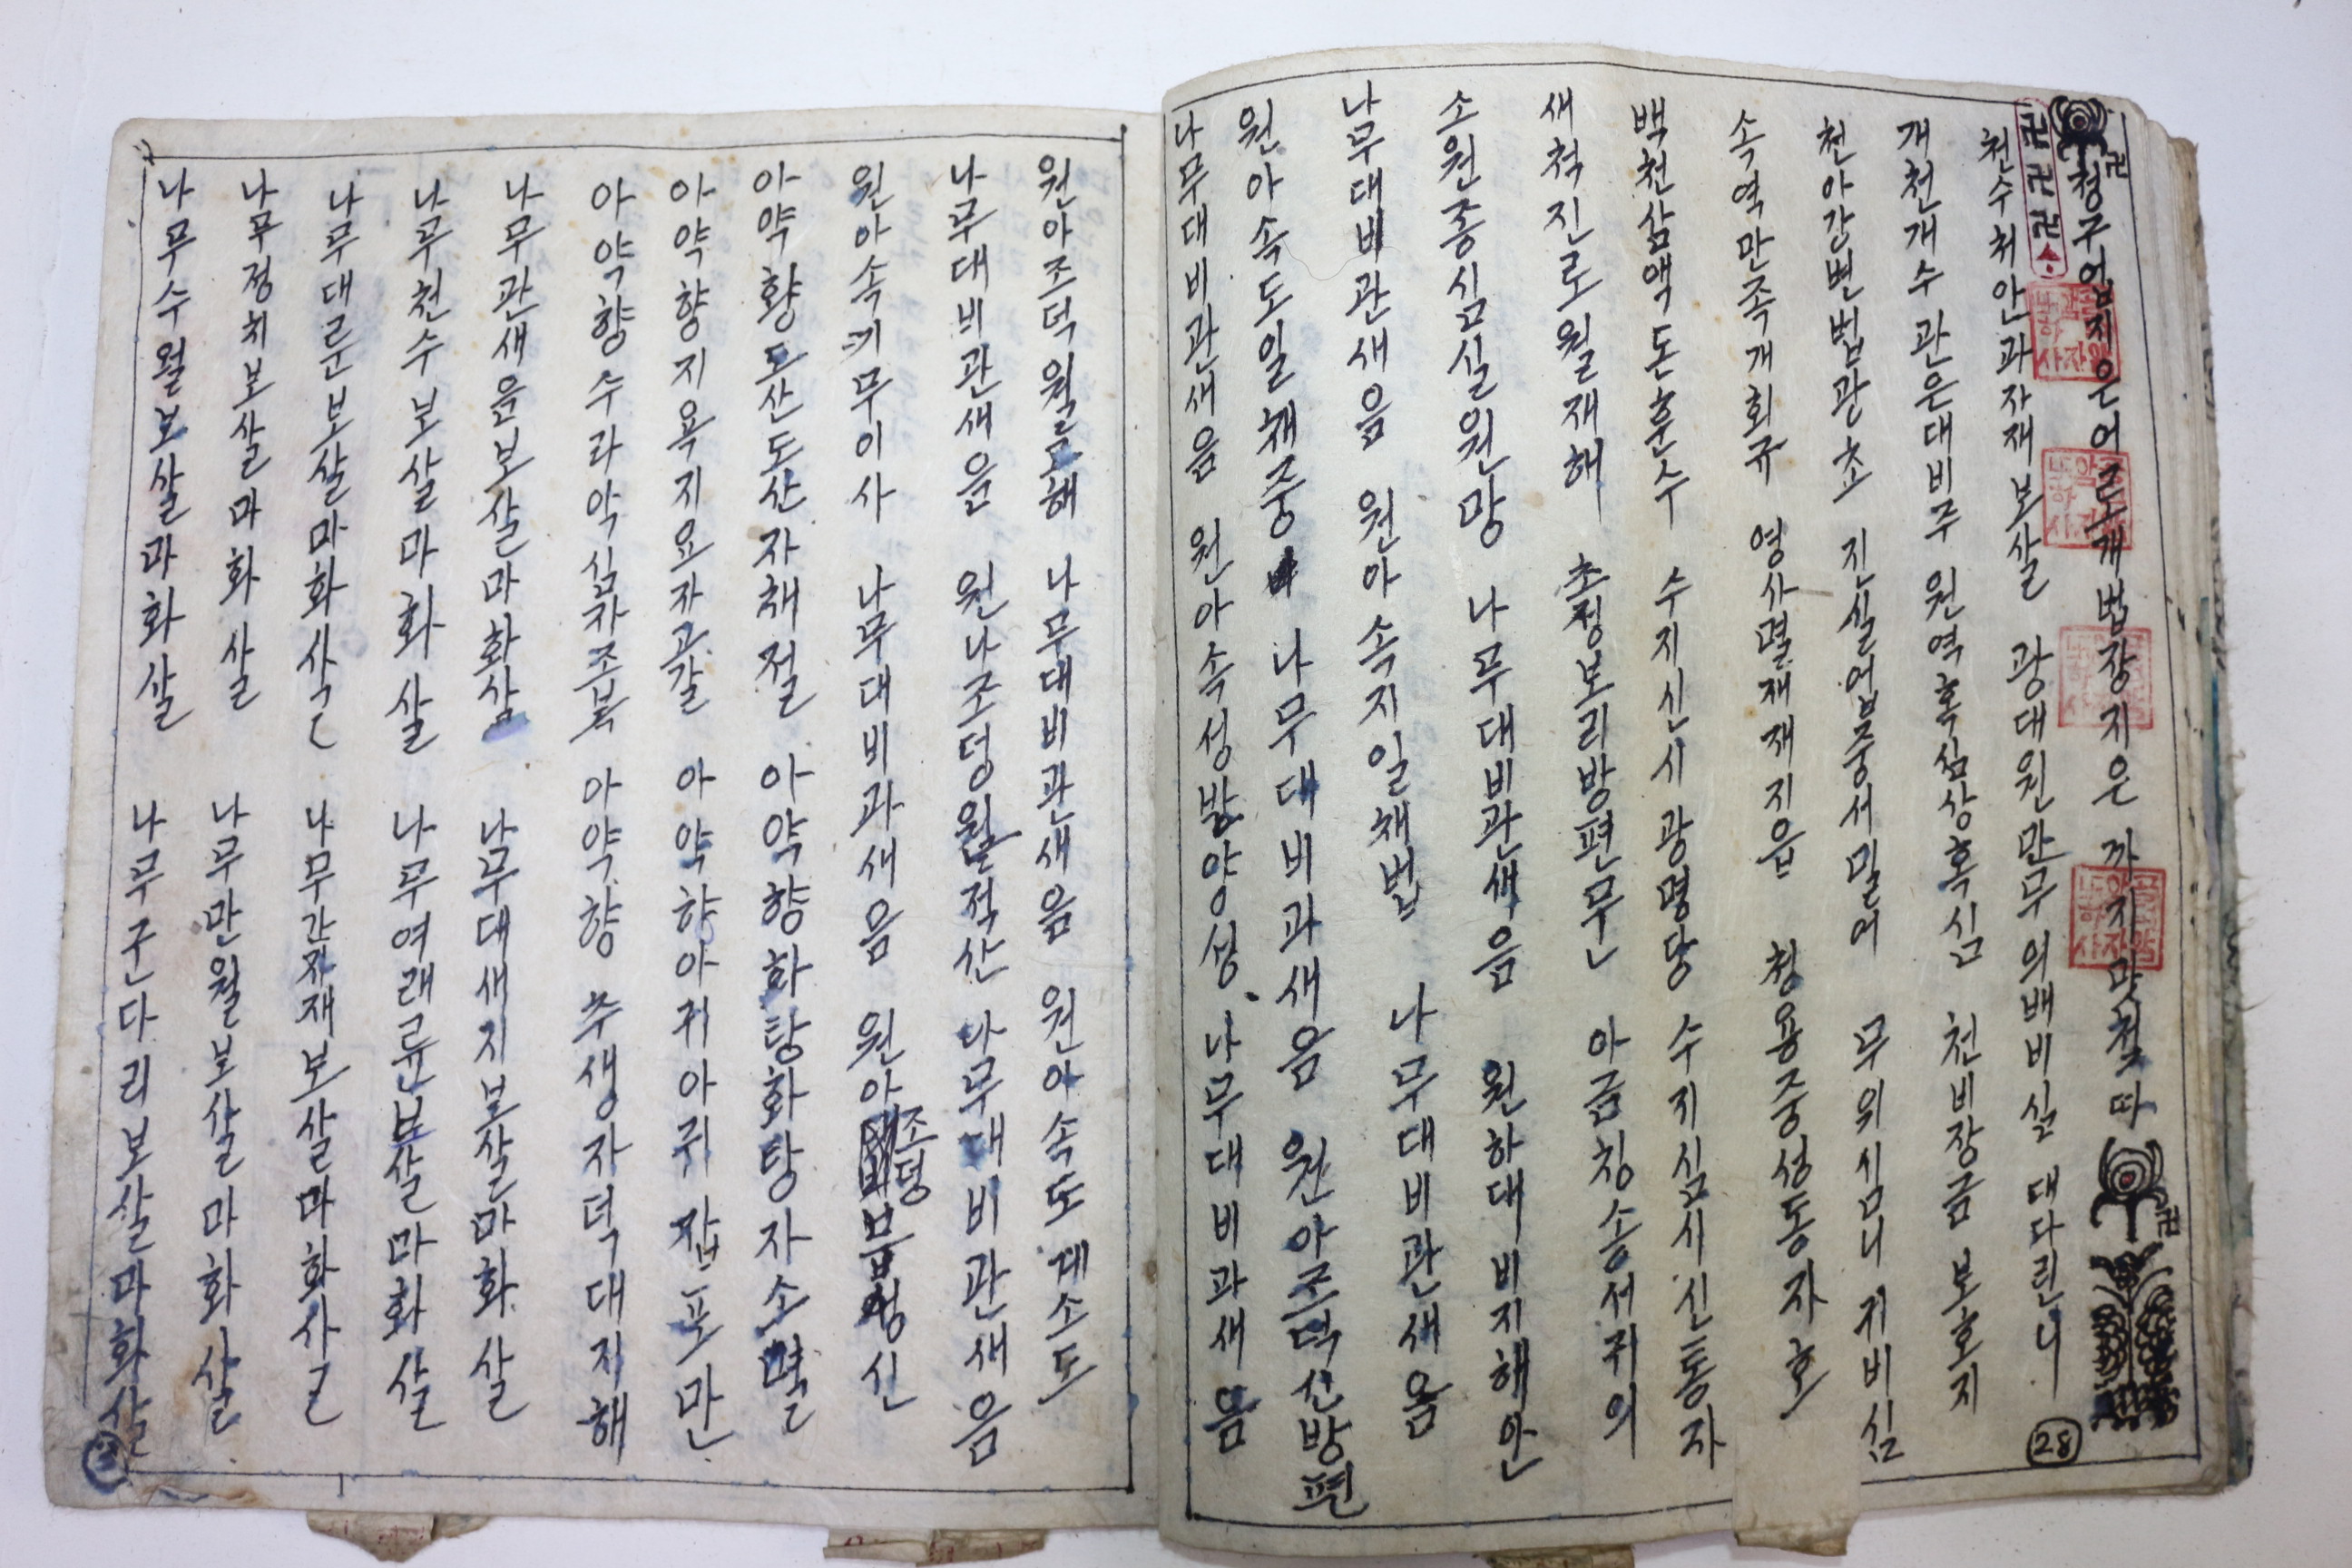 청구업지은어로개법장지은 까지맞첫따
천수처안과자재보살 광대원만무의배비심 대다린니
개천개수관은대비주 원역혹심상혹심 천비장금보호지
천아간변법관초 진실어부중서밀어 무위심니귀비심
속역만족개회규 영사멸재재지읍 청용중성동자호
백천삼액돈훈수 수지신시광명당 수지심시신통자
새척진로월재해 초정보리방편문 아금칭송서귀의
소원종심실원망 나무대비관새음 원하대비지해안
나무대비관새음 원아속지일채법 나무대비관새음
원아속도일채중 나무대비과새음 원아조덕선방편
나무대비관새음 원아속성반양성 나무대비과새음
28
원아조덕월고해 나무대비관새음 원아속도게소도
나무대비관새음 원나조덩월적산 나무대비관새음
원아속기무이사 나무대비과새음 원아조덩 신
아약향도산도산자채절 아약향화탕화탕자소멸
아약향지욕지요자고갈 아약향아귀아귀잡포만
아약향수라악심자조복 아약향수생자덕대지해
나무관새음보살마화살 나무대새지보살마화살
나무천수보살마화살 나무여래륜보살마화살
나무대룬보살마화살 나무간자재보살마화살
나무정취보살마화살 나무만월보살마화살
나무수월보살마화살 나무군다리보살마화살